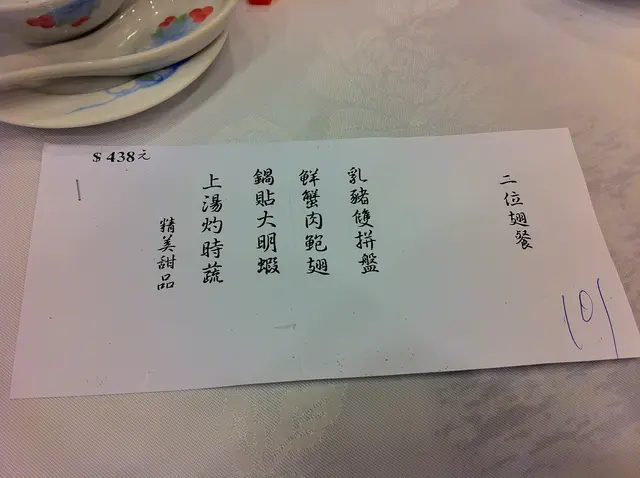 二位翅餐
乳豬雙拼盤
鮮蟹肉鮑翅
鍋貼大明蝦
上湯灼時蔬
精美甜品
$438元
101